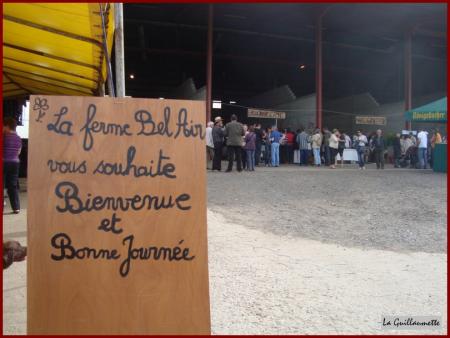 La ferme Bel Air
vous souhaite
Bienvenue
et
Bonne Journée
La Guillaumette